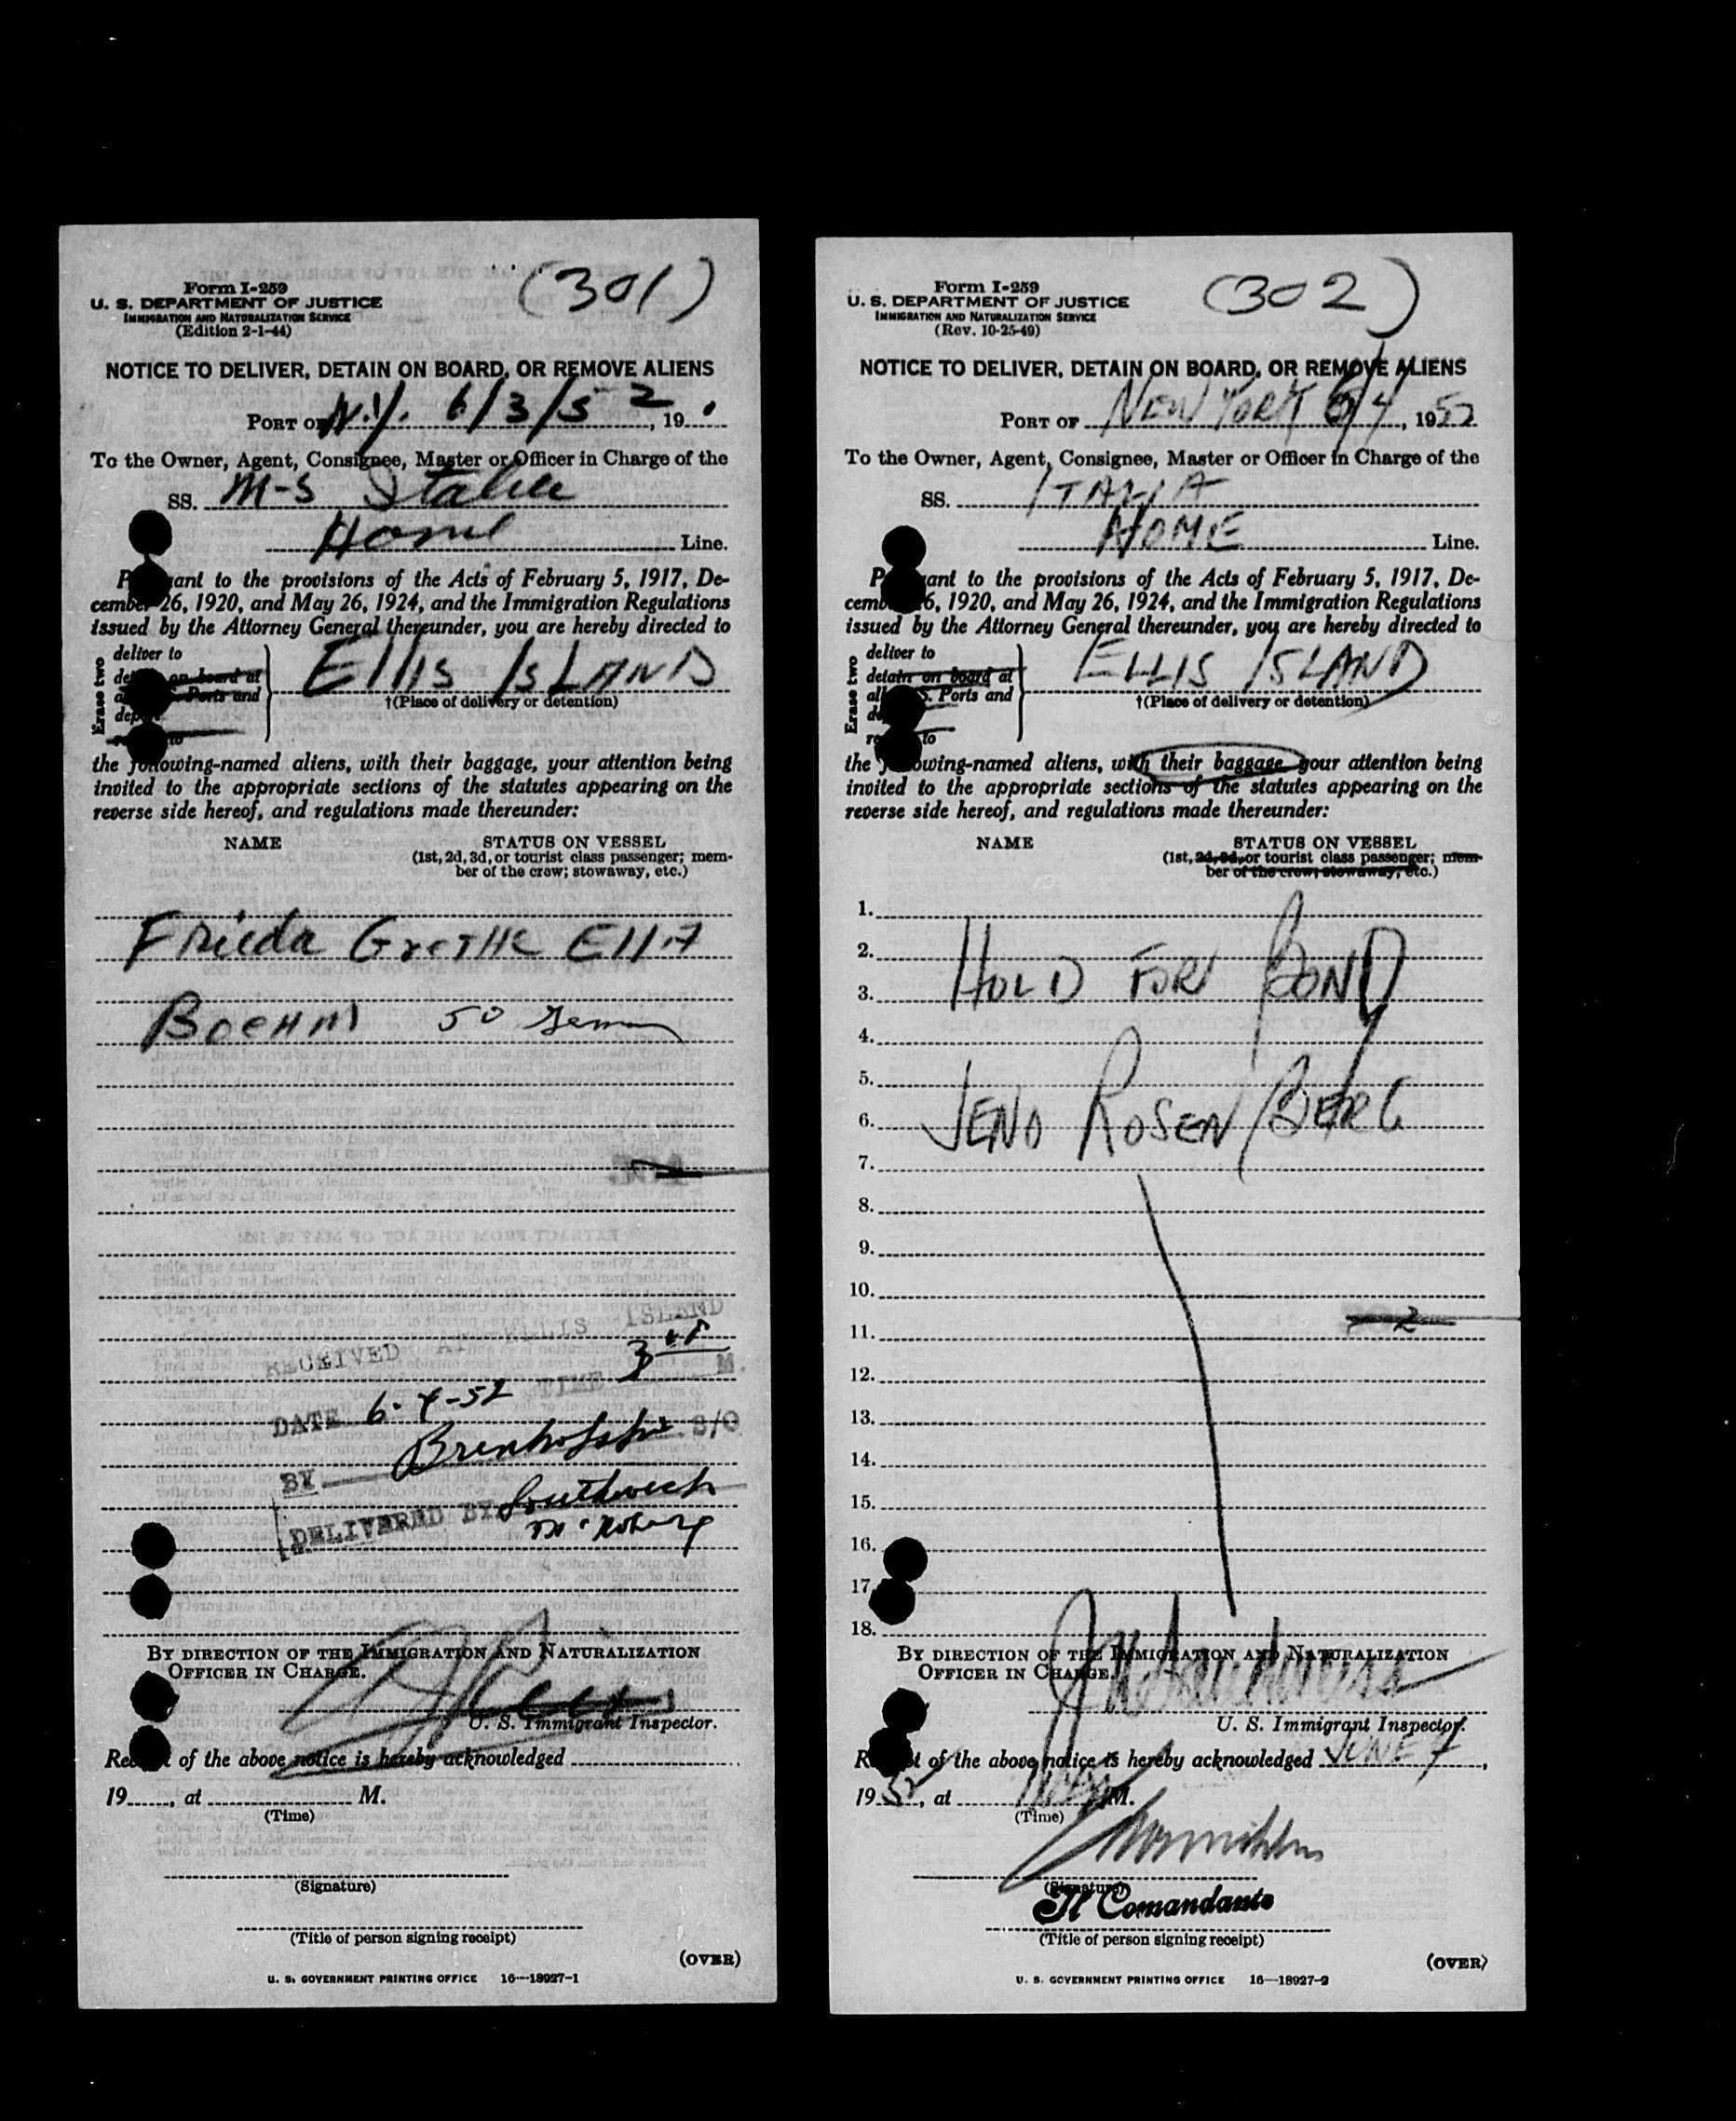 (301)
Form I-259
U. S. DEPARTMENT OF JUSTICE
IMMIGRATION AND NATURALIZATION SERVICE
(Edition 2-1-44)
NOTICE TO DELIVER, DETAIN ON BOARD, OR REMOVE ALIENS
PORT OF N.Y. 6/3/52, 19
To the Owner, Agent, Consignee, Master or Officer in Charge of the
SS. M-S Italia
Home Line.
ant to the provisions of the Acts of February 5, 1917, De-
cember 26, 1920, and May 26, 1924, and the Immigration Regulations
issued by the Attorney General thereunder, you are hereby directed to
Erase two
deliver to
on board at
Ports and
to
ELLIS ISLAND
†(Place of delivery or detention)
the following-named aliens, with their baggage, your attention being
invited to the appropriate sections of the statutes appearing on the
reverse side hereof, and regulations made thereunder:
NAME STATUS ON VESSEL
(1st, 2d, 3d, or tourist class passenger; mem-
ber of the crew; stowaway, etc.)
Frieda Grethe Ella
Boehm 50
RECEIVED AT ELLIS ISLAND
DATE 6-4-52 TIME 3 M.
BY S/O
DELIVERED BY
BY DIRECTION OF THE IMMIGRATION AND NATURALIZATION
OFFICER IN CHARGE.
U. S. Immigrant Inspector.
of the above notice is hereby acknowledged
19, at M.
(Time)
(Signature)
(Title of person signing receipt)
(OVER)
U. S. GOVERNMENT PRINTING OFFICE 16—18927-1
(302)
Form I-259
U. S. DEPARTMENT OF JUSTICE
IMMIGRATION AND NATURALIZATION SERVICE
(Rev. 10-25-49)
NOTICE TO DELIVER, DETAIN ON BOARD, OR REMOVE ALIENS
PORT OF NEW YORK 6/4, 1952
To the Owner, Agent, Consignee, Master or Officer in Charge of the
SS. ITALIA
HOME Line.
ant to the provisions of the Acts of February 5, 1917, De-
6, 1920, and May 26, 1924, and the Immigration Regulations
issued by the Attorney General thereunder, you are hereby directed to
Erase two
deliver to
detain on board at
all S. Ports and
to
ELLIS ISLAND
†(Place of delivery or detention)
the following-named aliens, with their baggage your attention being
invited to the appropriate sections of the statutes appearing on the
reverse side hereof, and regulations made thereunder:
NAME STATUS ON VESSEL
(1st, 2d, 3d, or tourist class passenger; mem-
ber of the crew; stowaway, etc.)
1.
2.
HOLD FOR BOND
3.
4.
5.
JENO ROSENBERG
6.
7.
8.
9.
10.
11.
2
12.
13.
14.
15.
16.
17
18.
BY DIRECTION OF THE IMMIGRATION AND NATURALIZATION
OFFICER IN CHARGE.
U. S. Immigrant Inspector.
of the above notice is hereby acknowledged JUNE 4,
1952, at M.
(Time)
(Signature)
Il Comandante
(Title of person signing receipt)
(OVER)
U. S. GOVERNMENT PRINTING OFFICE 16—18927-2